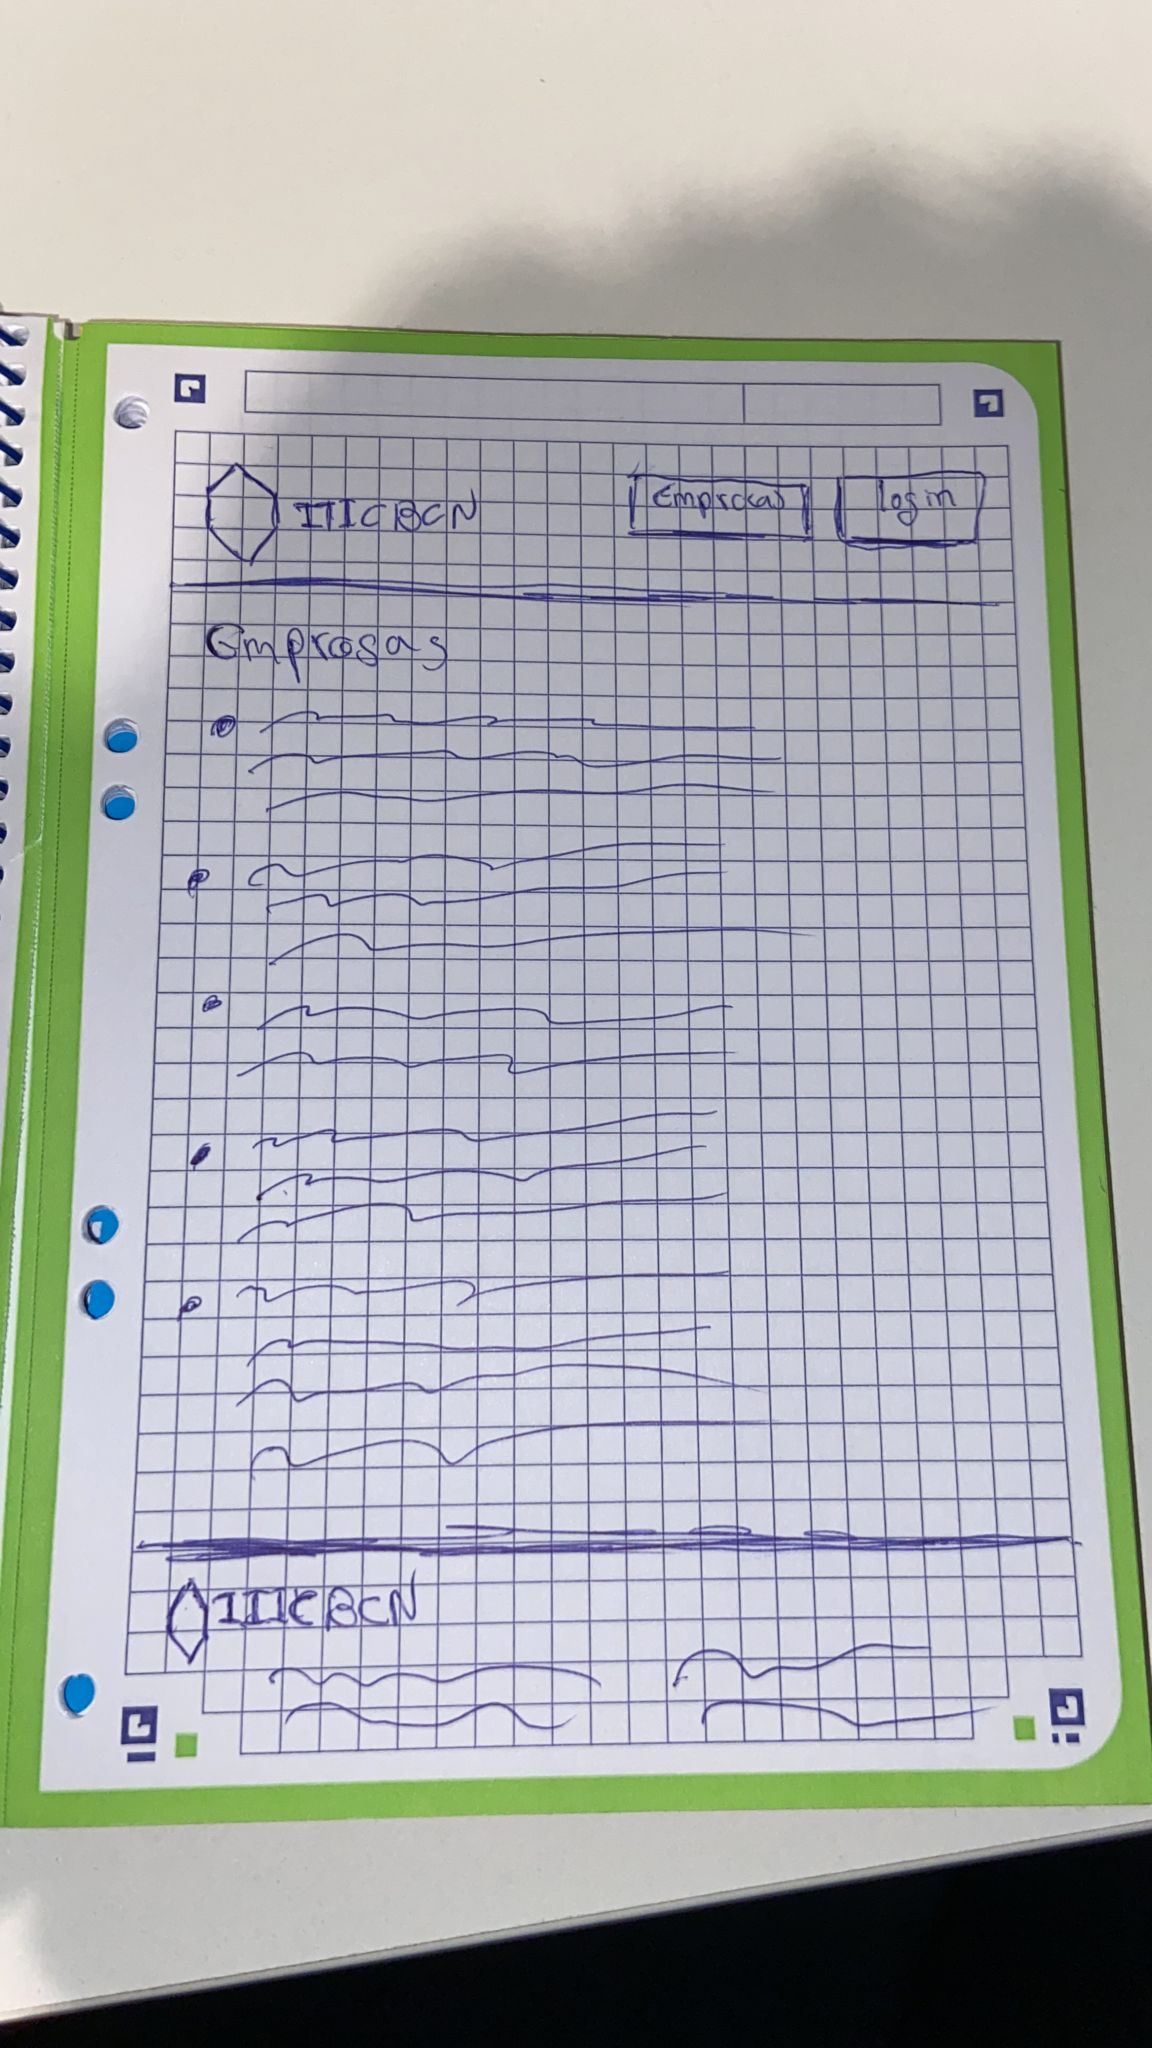 IIICBCN
Empresas
login
Empresas
IIICBCN